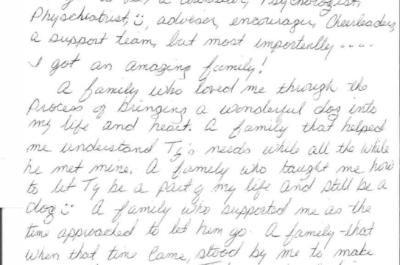 a Counselor, Psychologist,
Physchiatrist, ☺, advisor, encourager, Cheerleader,
a support team, but most importantly ....
I got an amazing family!
A family who loved me through the
Process of Bringing a wonderful dog into
my life and heart. A family that helped
me understand Ty's needs while all the while
he met mine. A family who taught me how
to let Ty be a part of my life and still be a
dog ☺ A family who supported me as the
time approached to let him go. A family that
when that time came, stood by me to make